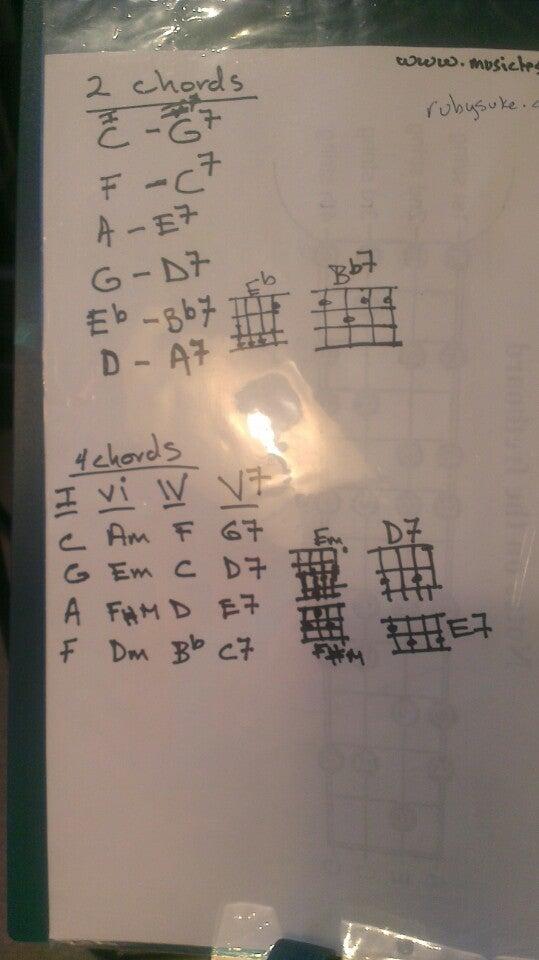 2 chords
www.musicte
rubysuke.
I
C - G7
F - C7
A - E7
G - D7
Eb Bb7
Eb - Bb7
D - A7
4 chords
I vi IV V7
C Am F G7
Em D7
G Em C D7
A F#M D E7
E7
F Dm Bb C7
F#M